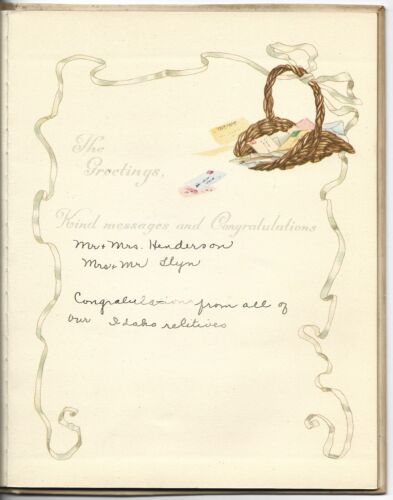 The
Greetings,
Kind messages and Congratulations
Mr + Mrs. Henderson
Mrs + Mr Flyn
Congratulations from all of
our Idaho relitives